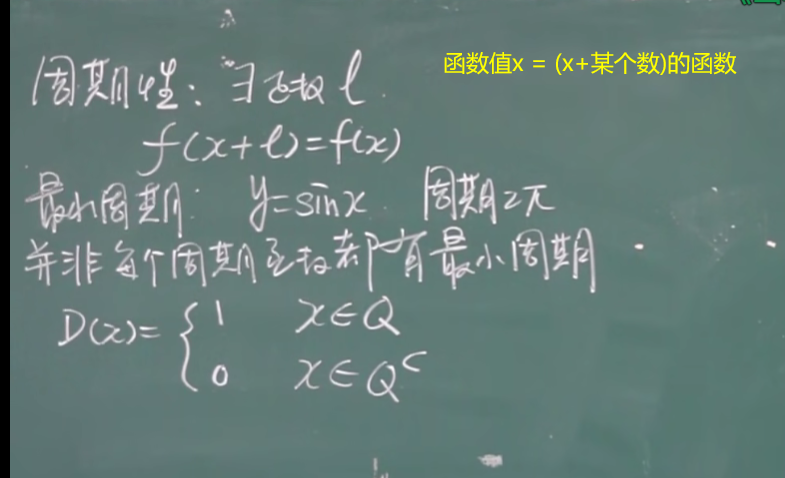 周期性: ∃正数 l.
函数值x = (x+某个数)的函数
f(x+l)=f(x)
最小周期: y=sinx. 周期2π
并非每个周期函数都有最小周期.
D(x)= { 1 x∈Q
0 x∈Qᶜ